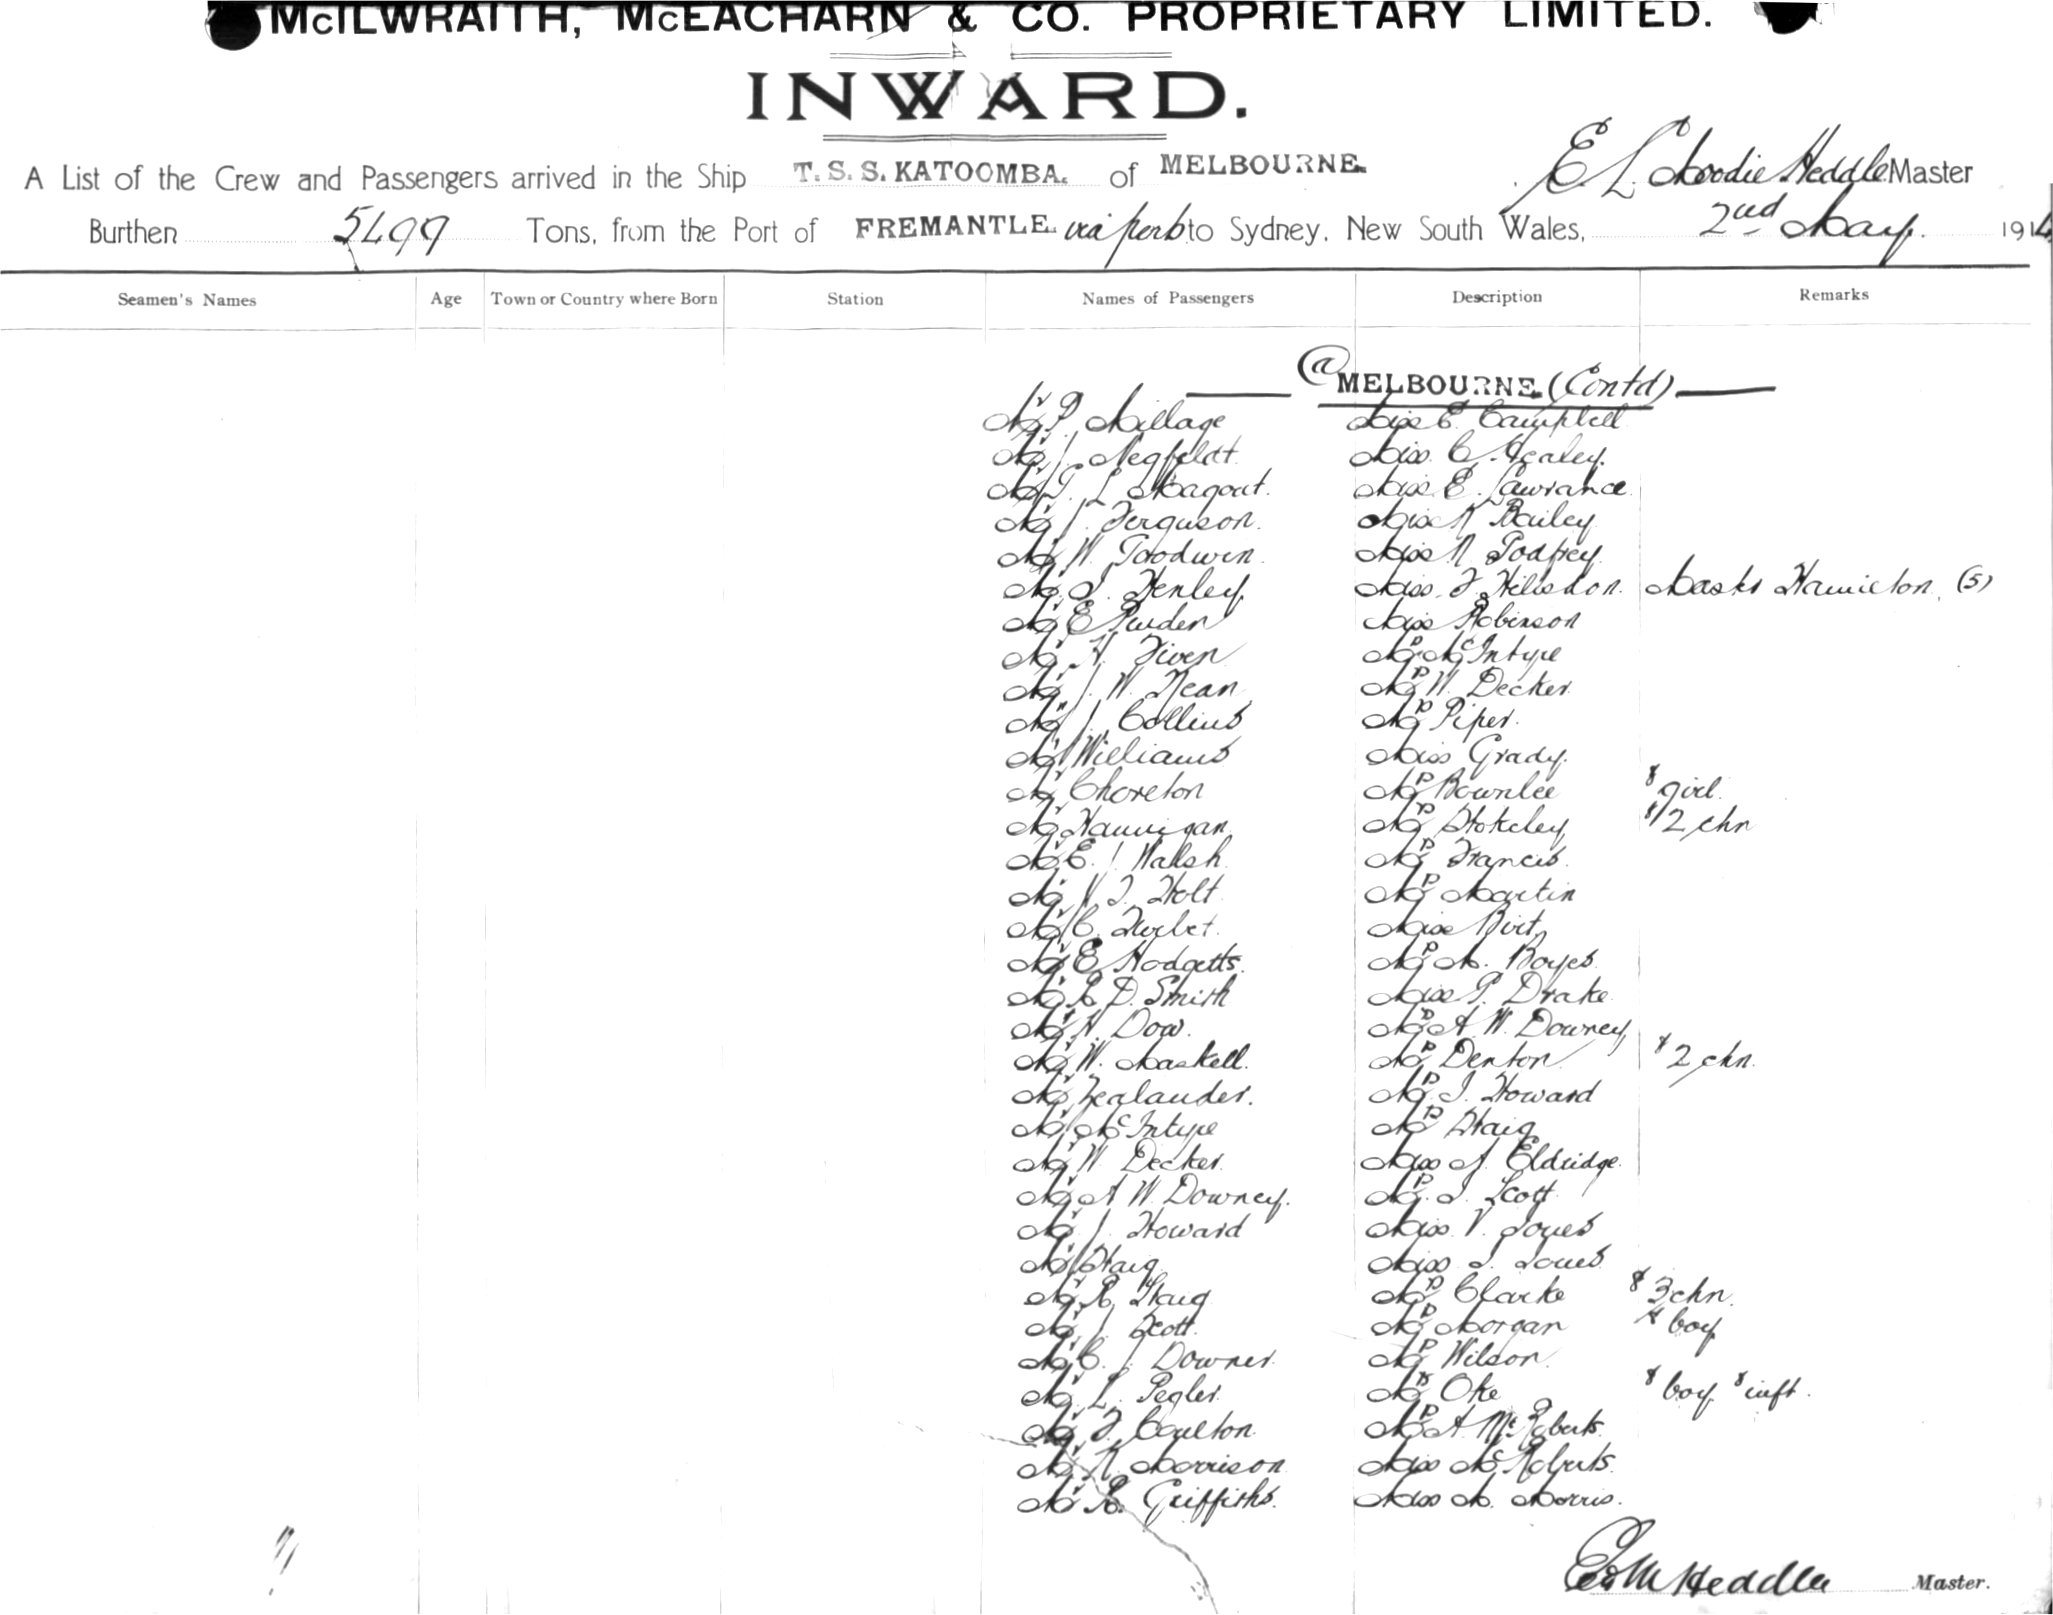 McILWRAITH, McEACHARN & CO. PROPRIETARY LIMITED.
INWARD.
A List of the Crew and Passengers arrived in the Ship T. S. S. KATOOMBA. of MELBOURNE. E L Moodie Heddle Master
Burthen 5499 Tons, from the Port of FREMANTLE. via ports to Sydney, New South Wales, 2nd May. 1914
Seamen's Names Age Town or Country where Born Station Names of Passengers Description Remarks
@ MELBOURNE (Contd)
Mr P. Millage Miss E. Campbell
Mr J. Miss C. Healey.
Mr T. L. Miss E. Lawrance
Mr J. Ferguson. Miss Bailey
Mr W. Goodwin. Miss Godfrey
Mr J. Henley Miss F. Masts Hamilton. (5)
Mr E Miss Robinson
Mr H. Mrs McIntyre
Mr J. W. Kean Mrs W. Decker
Mr J. Collins Mrs Piper.
Mr Williams Miss Grady.
Mr Choreton Mrs Bownlee & girl.
Mr Hannigan. Mrs Stokeley & 2 chn
Mr E. J Walsh. Mrs Francis.
Mr Holt. Mrs Martin
Mr C. Miss Birt
Mr E Hodgetts. Mrs M. Boyes
Mr R D. Smith Miss P. Drake
Mr H. Dow. Mrs A. W. Downey
Mr W. Maskell. Mrs Denton & 2 chn.
Mr Zealander. Mrs J. Howard
Mr McIntyre Mrs Haig
Mr W Decker. Miss A. Eldridge.
Mr A W. Downey. Mrs J. Scott
Mr J. Howard Miss V. Jones
Mr Haig Miss I. Jones
Mr R. Haig Mrs Clarke & 3 chn.
Mr J. Scott. Mrs Morgan & boy
Mr C. J. Downer. Mrs Wilson.
Mr L. Pegler. Mrs Oke & boy & inft.
Mr F. Coulton Mrs A. McRoberts.
Mr N. Morrison Miss McRoberts.
Mr R. Griffiths. Miss M. Morris.
Heddle Master.